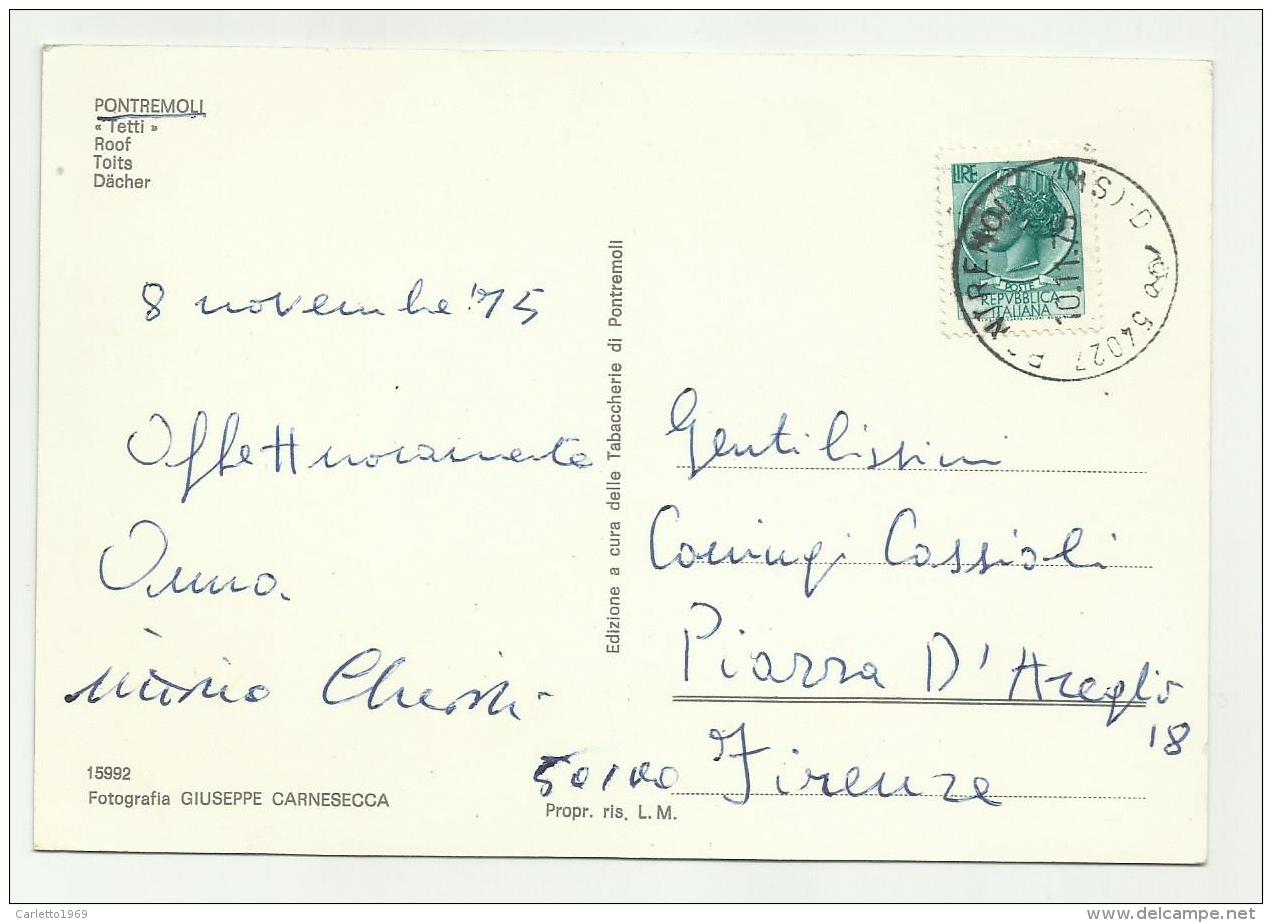 PONTREMOLI
« Tetti »
Roof
Toits
Dächer
8 novembre '75
Affettuosamente
Anna
Mario
15992
Fotografia GIUSEPPE CARNESECCA
Edizione a cura delle Tabaccherie di Pontremoli
Propr. ris. L.M.
LIRE 70
POSTE
REPVBBLICA
ITALIANA
(MS)-D
10.11.75
54027
Gentilissimi
Coniugi Cassioli
Piazza D'Azeglio
18
50100 Firenze
Carletto1969
www.delcampe.net